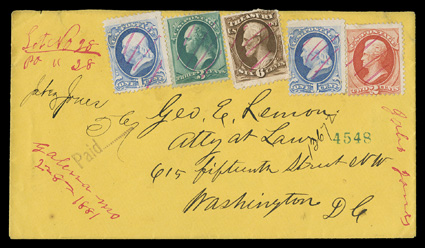 Lot No 28
PO 11 28
John Jones
Geo. E. Lemon
Atty at Law
4548
615 fifteenth Street NW
Washington
D C
Paid
Galena Mo
1881
John Jones